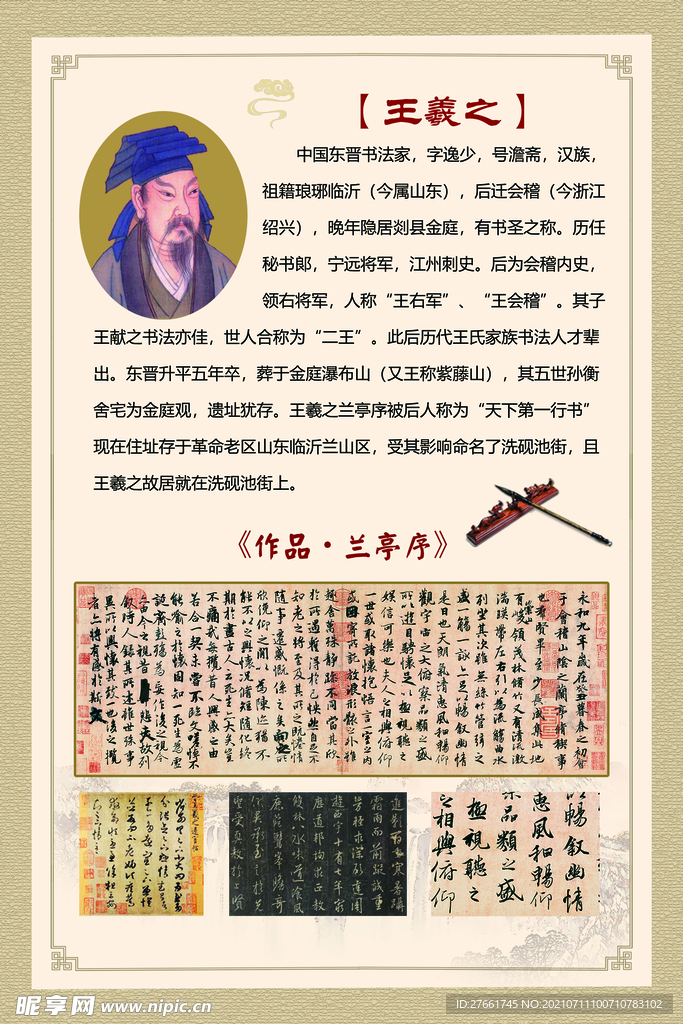 【王羲之】
中国东晋书法家，字逸少，号澹斋，汉族，
祖籍琅琊临沂（今属山东），后迁会稽（今浙江
绍兴），晚年隐居剡县金庭，有书圣之称。历任
秘书郎，宁远将军，江州刺史。后为会稽内史，
领右将军，人称“王右军”、“王会稽”。其子
王献之书法亦佳，世人合称为“二王”。此后历代王氏家族书法人才辈
出。东晋升平五年卒，葬于金庭瀑布山（又王称紫藤山），其五世孙衡
舍宅为金庭观，遗址犹存。王羲之兰亭序被后人称为“天下第一行书”
现在住址存于革命老区山东临沂兰山区，受其影响命名了洗砚池街，且
王羲之故居就在洗砚池街上。
《作品·兰亭序》
永和九年歲在癸丑暮春之初會
于會稽山陰之蘭亭脩稧事
也羣賢畢至少長咸集此地
有崇山峻領茂林脩竹又有清流激
湍暎帶左右引以為流觴曲水
列坐其次雖無絲竹管弦之
盛一觴一詠亦足以暢叙幽情
是日也天朗氣清惠風和暢仰
觀宇宙之大俯察品類之盛
所以遊目騁懷足以極視聽之
娛信可樂也夫人之相與俯仰
一世或取諸懷抱悟言一室之內
或因寄所託放浪形骸之外雖
趣舍萬殊靜躁不同當其欣
於所遇蹔得於己怏然自足不
知老之將至及其所之既惓情
隨事遷感慨係之矣向之所
欣俛仰之間以為陳迹猶不
能不以之興懷況脩短隨化終
期於盡古人云死生亦大矣豈
不痛哉每攬昔人興感之由
若合一契未嘗不臨文嗟悼不
能喻之於懷固知一死生為虛
誕齊彭殤為妄作後之視今
亦由今之視昔悲夫故列
敘時人錄其所述雖世殊事
異所以興懷其致一也後之攬
者亦將有感於斯文
以暢叙幽情
惠風和暢仰
品類之盛
極視聽之
之相與俯仰
昵享网 www.nipic.cn
ID:27661745 NO:20210711100710783102